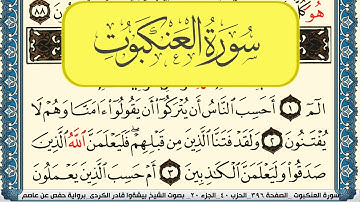 هُوَ
٨٨
سُورَةُ الْعَنكَبُوتِ
الٓمٓ ١ أَحَسِبَ ٱلنَّاسُ أَن يُتۡرَكُوٓاْ أَن يَقُولُوٓاْ ءَامَنَّا وَهُمۡ لَا
يُفۡتَنُونَ ٢ وَلَقَدۡ فَتَنَّا ٱلَّذِينَ مِن قَبۡلِهِمۡۖ فَلَيَعۡلَمَنَّ ٱللَّهُ ٱلَّذِينَ
صَدَقُواْ وَلَيَعۡلَمَنَّ ٱلۡكَٰذِبِينَ ٣ أَمۡ حَسِبَ ٱلَّذِينَ يَعۡمَلُونَ
سورة العنكبوت - الصفحة ٣٩٦ - الحزب ٤٠ - الجزء ٢٠ - بصوت الشيخ بيشةوا قادر الكردي - برواية حفص عن عاصم